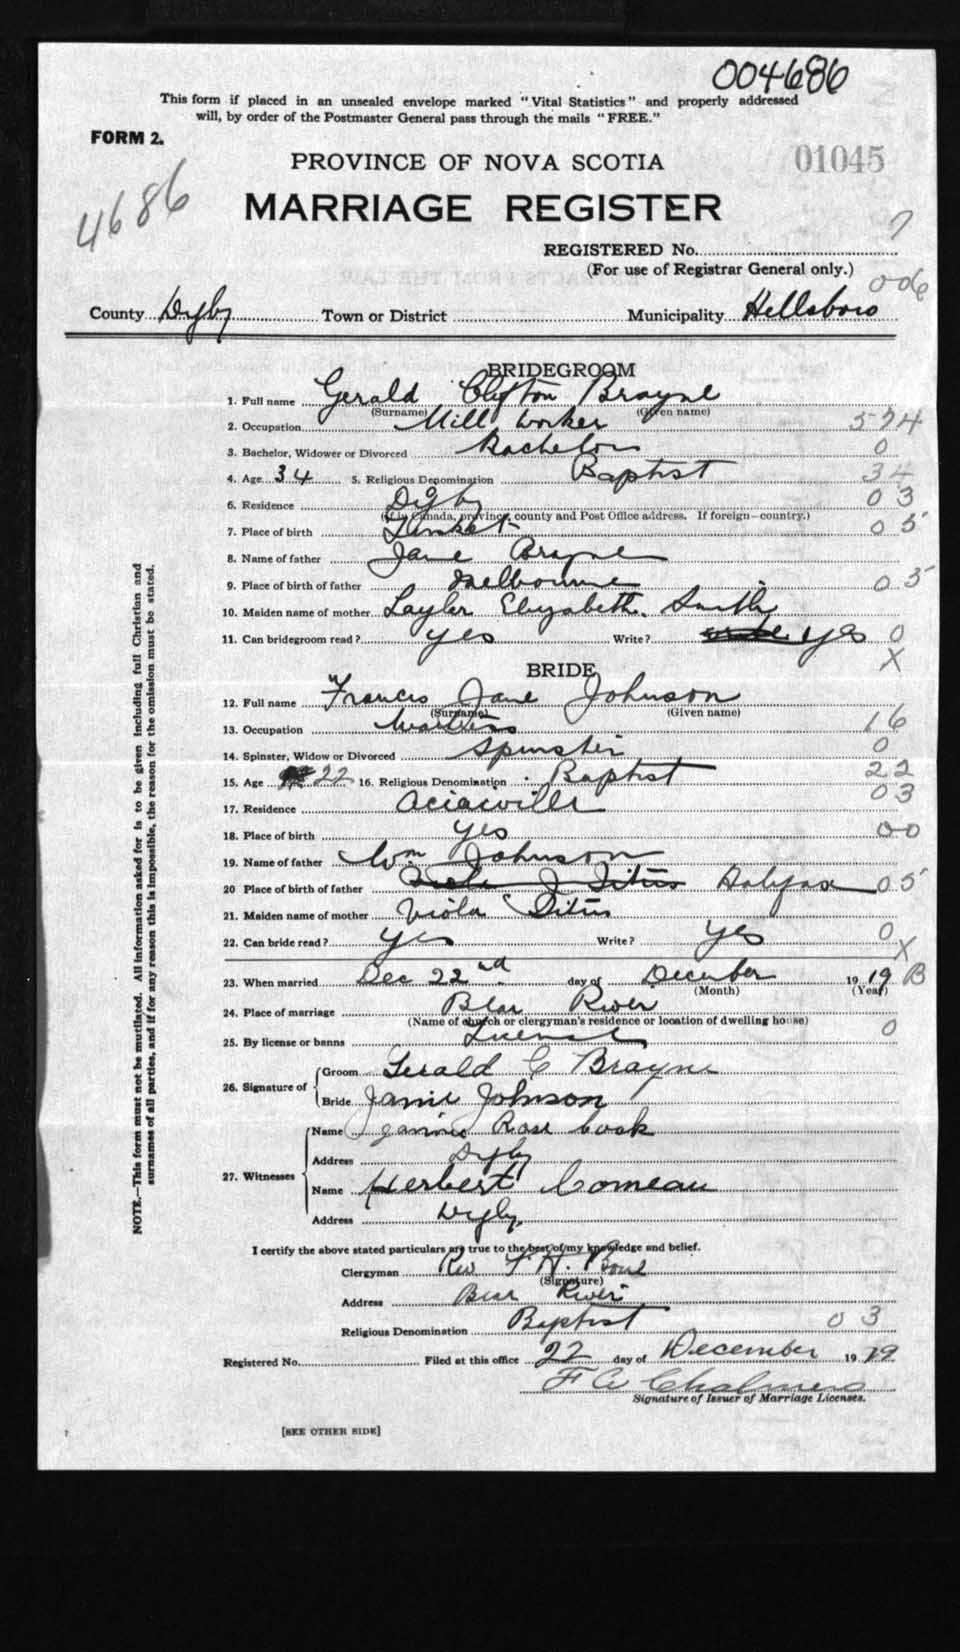 004686
This form if placed in an unsealed envelope marked "Vital Statistics" and properly addressed
will, by order of the Postmaster General pass through the mails "FREE."
FORM 2.
PROVINCE OF NOVA SCOTIA
01045
4686
MARRIAGE REGISTER
REGISTERED No. 7
(For use of Registrar General only.)
006
County Digby Town or District Municipality Hillsboro
BRIDEGROOM
1. Full name Gerald Clifton Brayne
(Surname) (Given name)
2. Occupation Mill worker 574
3. Bachelor, Widower or Divorced Bachelor 0
4. Age 34 5. Religious Denomination Baptist 34
6. Residence Digby 03
(If in Canada, province, county and Post Office address. If foreign—country.)
7. Place of birth 05
8. Name of father Jane Brayne
9. Place of birth of father Melbourne 05
10. Maiden name of mother Elizabeth Smith
11. Can bridegroom read? yes Write? yes 0
X
BRIDE
12. Full name Francis Jane Johnson
(Surname) (Given name)
13. Occupation Waitress 16
14. Spinster, Widow or Divorced Spinster 0
15. Age 22 16. Religious Denomination Baptist 22
17. Residence Aciaville 03
18. Place of birth yes 00
19. Name of father Wm Johnson
20 Place of birth of father Titus Halifax 05
21. Maiden name of mother Viola Titus
22. Can bride read? yes Write? yes 0
X
23. When married Dec 22nd day of December 1919 B
(Month) (Year)
24. Place of marriage Bear River
(Name of church or clergyman's residence or location of dwelling house) 0
25. By license or banns License
26. Signature of Groom Gerald C Brayne
Bride Janie Johnson
27. Witnesses Name Jannie Rose Cook
Address Digby
Name Herbert Comeau
Address Digby
I certify the above stated particulars are true to the best of my knowledge and belief.
Clergyman Rev F. H. Bone
(Signature)
Address Bear River
Religious Denomination Baptist 03
Registered No. Filed at this office 22 day of December 1919
F A Chalmers
Signature of Issuer of Marriage Licenses.
[SEE OTHER SIDE]
NOTE.—This form must not be mutilated. All information asked for is to be given including full Christian and
surnames of all parties, and if for any reason this is impossible, the reason for the omission must be stated.